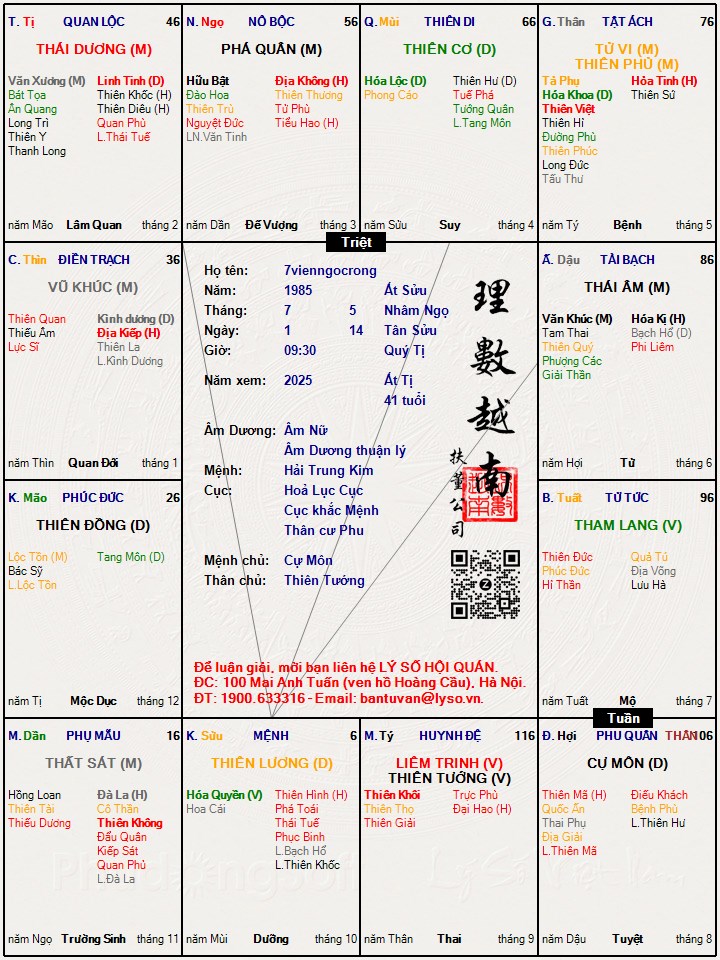 T. Tị QUAN LỘC 46
THÁI DƯƠNG (M)
Văn Xương (M) Linh Tinh (D)
Bát Tọa Thiên Khốc (H)
Ân Quang Thiên Diêu (H)
Long Trì Quan Phù
Thiên Y L.Thái Tuế
Thanh Long
năm Mão Lâm Quan tháng 2
N. Ngọ NÔ BỘC 56
PHÁ QUÂN (M)
Hữu Bật Địa Không (H)
Đào Hoa Thiên Thương
Thiên Trù Tử Phù
Nguyệt Đức Tiểu Hao (H)
LN.Văn Tinh
năm Dần Đế Vượng tháng 3
Q. Mùi THIÊN DI 66
THIÊN CƠ (D)
Hóa Lộc (D) Thiên Hư (D)
Phong Cáo Tuế Phá
Tướng Quân
L.Tang Môn
năm Sửu Suy tháng 4
G. Thân TẬT ÁCH 76
TỬ VI (M)
THIÊN PHỦ (M)
Tả Phụ Hỏa Tinh (H)
Hóa Khoa (D) Thiên Sứ
Thiên Việt
Thiên Hỉ
Đường Phù
Thiên Phúc
Long Đức
Tấu Thư
năm Tý Bệnh tháng 5
Triệt
C. Thìn ĐIỀN TRẠCH 36
VŨ KHÚC (M)
Thiên Quan Kình dương (D)
Thiếu Âm Địa Kiếp (H)
Lực Sĩ Thiên La
L.Kình Dương
năm Thìn Quan Đới tháng 1
Họ tên: 7vienngocrong
Năm: 1985 Ất Sửu
Tháng: 7 5 Nhâm Ngọ
Ngày: 1 14 Tân Sửu
Giờ: 09:30 Quý Tị
Năm xem: 2025 Ất Tị
41 tuổi
Âm Dương: Âm Nữ
Âm Dương thuận lý
Mệnh: Hải Trung Kim
Cục: Hoả Lục Cục
Cục khắc Mệnh
Thân cư Phu
Mệnh chủ: Cự Môn
Thân chủ: Thiên Tướng
理數越南
扶董公司
Để luận giải, mời bạn liên hệ LÝ SỐ HỘI QUÁN.
ĐC: 100 Mai Anh Tuấn (ven hồ Hoàng Cầu), Hà Nội.
ĐT: 1900.633316 - Email: bantuvan@lyso.vn.
Ấ. Dậu TÀI BẠCH 86
THÁI ÂM (M)
Văn Khúc (M) Hóa Kị (H)
Tam Thai Bạch Hổ (D)
Thiên Quý Phi Liêm
Phượng Các
Giải Thần
năm Hợi Tử tháng 6
K. Mão PHÚC ĐỨC 26
THIÊN ĐỒNG (D)
Lộc Tồn (M) Tang Môn (D)
Bác Sỹ
L.Lộc Tồn
năm Tị Mộc Dục tháng 12
B. Tuất TỬ TỨC 96
THAM LANG (V)
Thiên Đức Quả Tú
Phúc Đức Địa Võng
Hỉ Thần Lưu Hà
năm Tuất Mộ tháng 7
Tuần
M. Dần PHỤ MẪU 16
THẤT SÁT (M)
Hồng Loan Đà La (H)
Thiên Tài Cô Thần
Thiếu Dương Thiên Không
Đẩu Quân
Kiếp Sát
Quan Phủ
L.Đà La
năm Ngọ Trường Sinh tháng 11
K. Sửu MỆNH 6
THIÊN LƯƠNG (D)
Hóa Quyền (V) Thiên Hình (H)
Hoa Cái Phá Toái
Thái Tuế
Phục Binh
L.Bạch Hổ
L.Thiên Khốc
năm Mùi Dưỡng tháng 10
M. Tý HUYNH ĐỆ 116
LIÊM TRINH (V)
THIÊN TƯỚNG (V)
Thiên Khôi Trực Phù
Thiên Thọ Đại Hao (H)
Thiên Giải
năm Thân Thai tháng 9
Đ. Hợi PHU QUÂN THÂN 106
CỰ MÔN (D)
Thiên Mã (H) Điếu Khách
Quốc Ấn Bệnh Phù
Thai Phụ L.Thiên Hư
Địa Giải
L.Thiên Mã
năm Dậu Tuyệt tháng 8